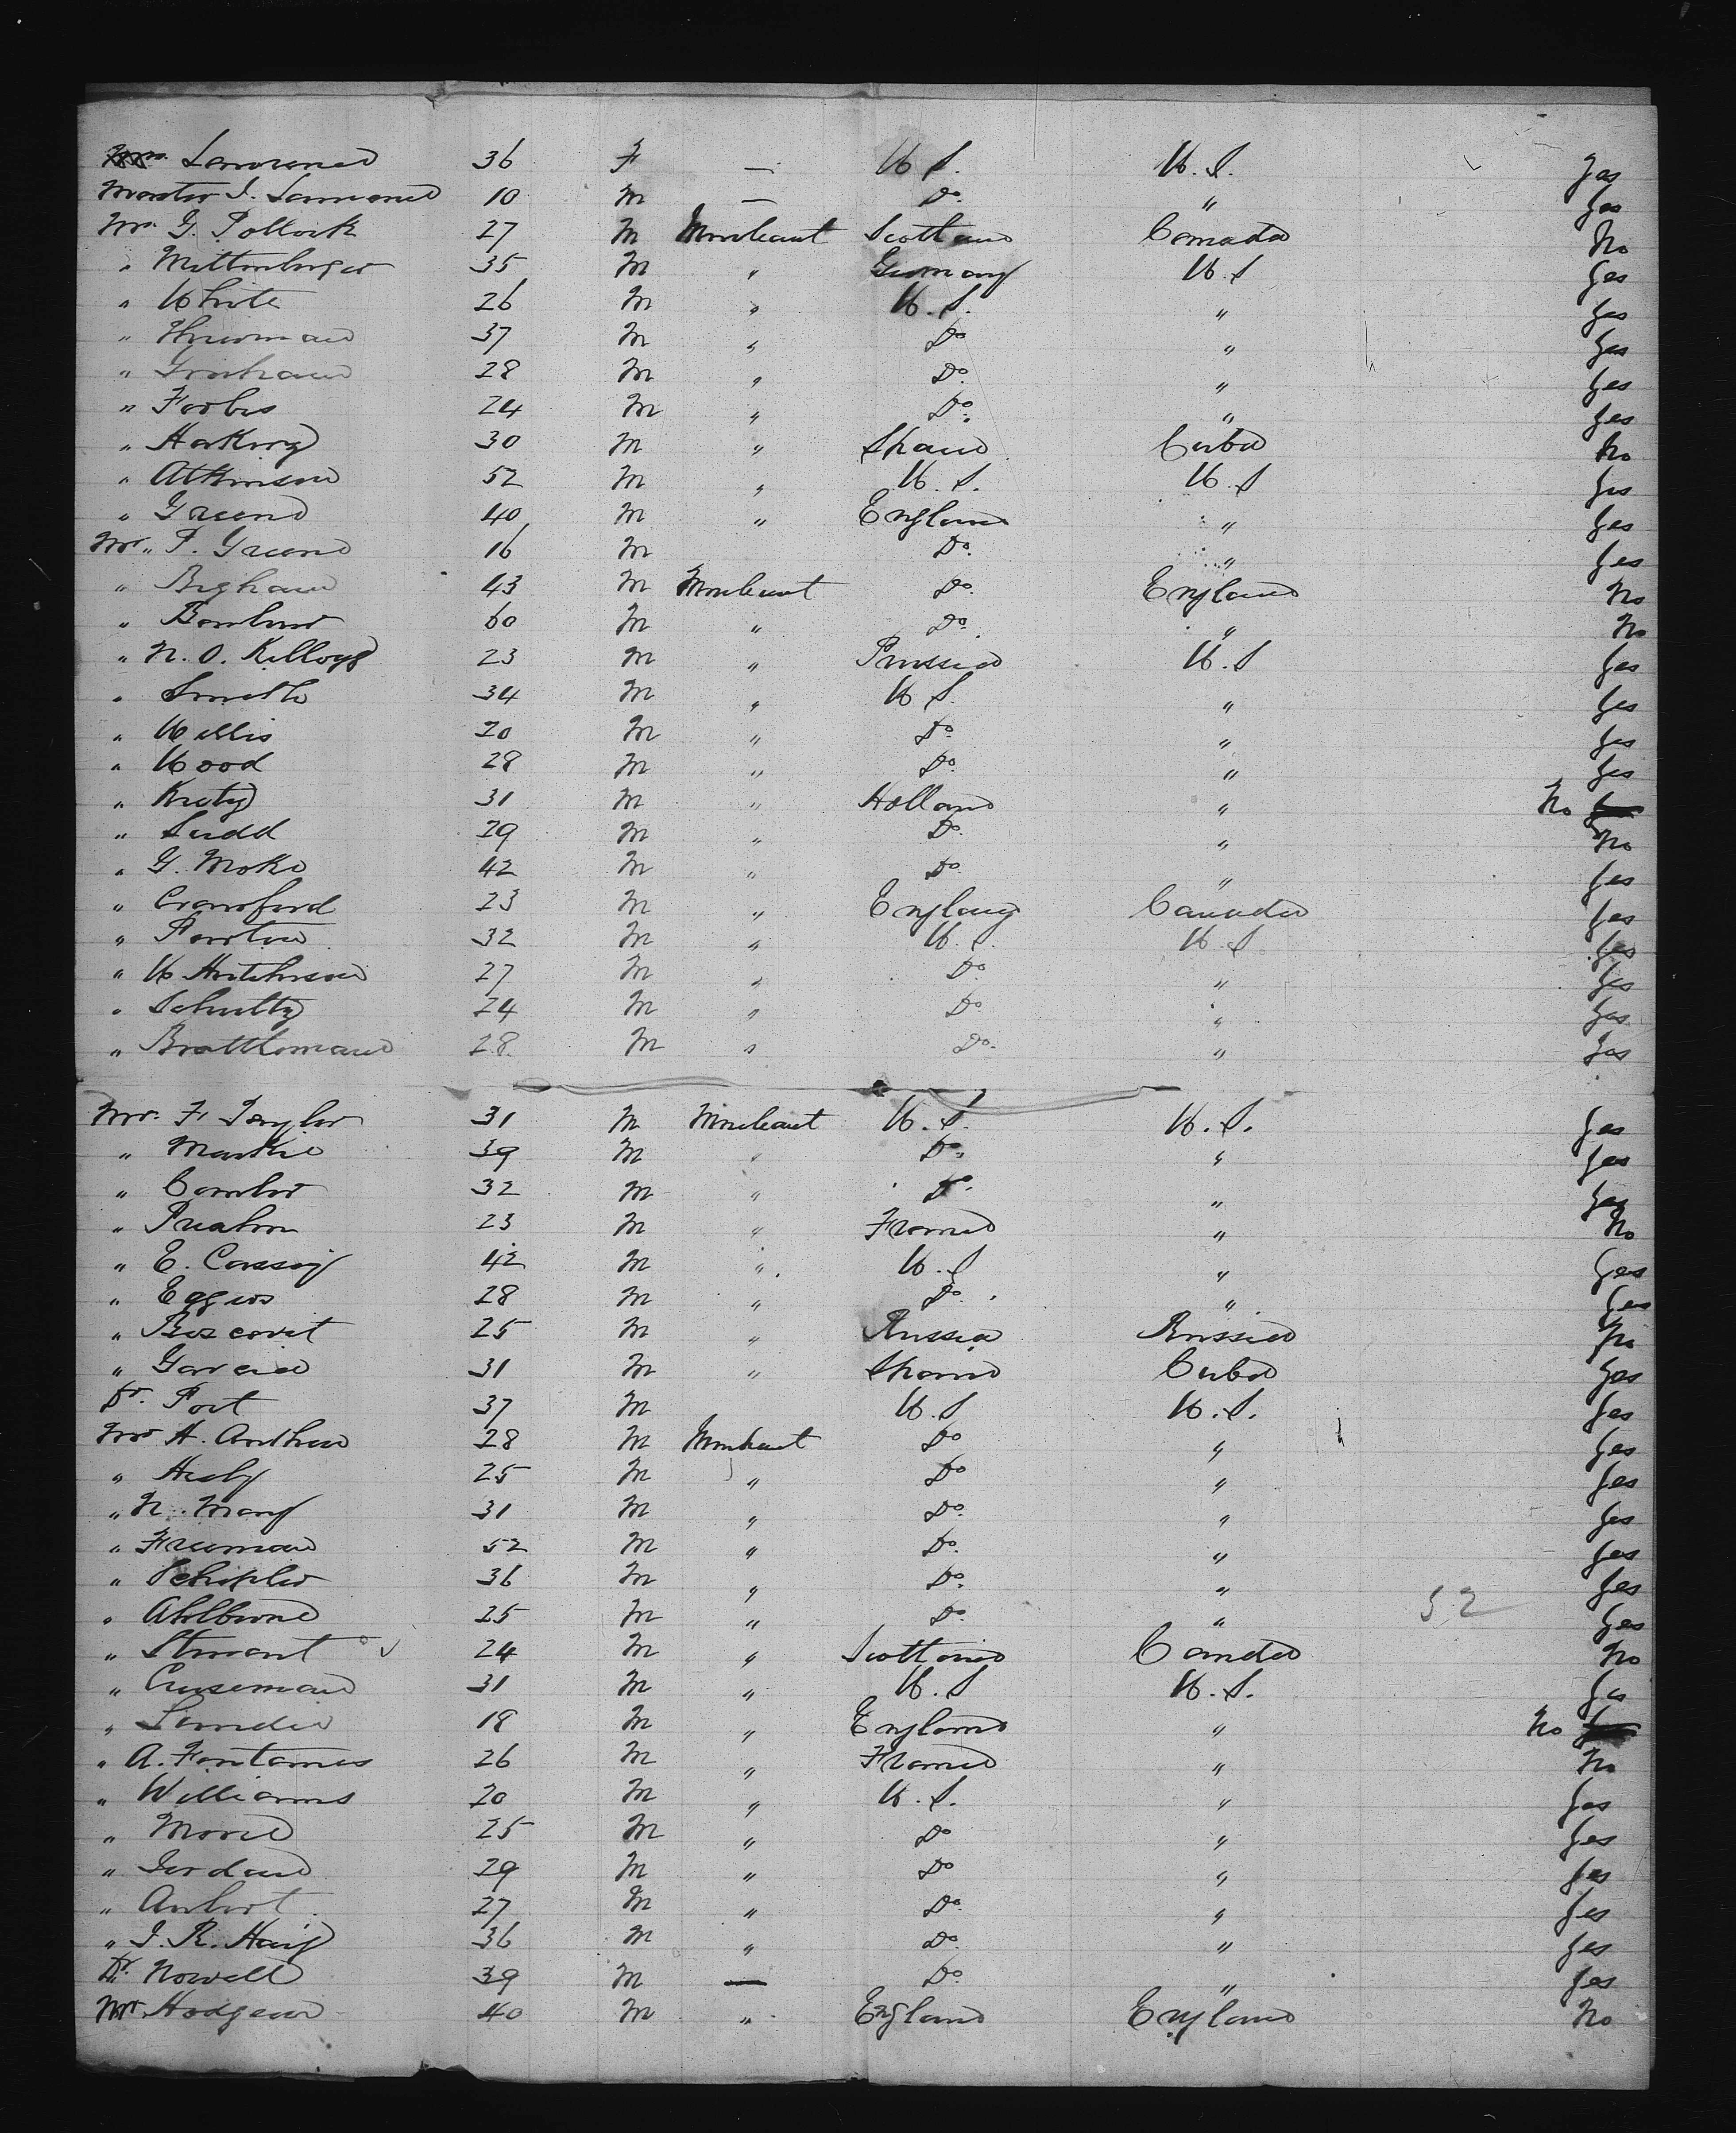 Mrs. Lawrence 36 F — U S. U. S. Yes
Master J. Lawrence 10 M — Do. " Yes
Mr. G. Pollock 27 M Merchant Scotland Canada No
" Mittenberger 35 M " Germany U. S Yes
" White 26 M " U. S. " Yes
" Thurman 37 M " Do " Yes
" Graham 28 M " Do. " Yes
" Forbes 24 M " Do. " Yes
" 30 M " Spain Cuba No
" Atkinson 52 M " U. S. U. S Yes
" Greene 40 M " England " Yes
Mr. " P. Greene 16 M Do. " Yes
" Bigham 43 M Merchant Do. England No
" 60 M " Do. " No
" N. O. Kellogg 23 M " Prussia U. S Yes
" Smith 34 M " U S. " Yes
" Willis 20 M " Do. " Yes
" Wood 28 M " Do. " Yes
" 31 M " Holland " No
" Ludd 29 M " Do. " No
" G. Moke 42 M " Do. " Yes
" Crawford 23 M " England Canada Yes
" Porter 32 M " U. S. U. S Yes
" W Hutchinson 27 M " Do. " Yes
" Schultz 24 M " Do. " Yes
" 28. M " Do. " Yes
Mr. F. Taylor 31 M Merchant U. S. U. S. Yes
" 39 M " Do. " Yes
" 32 M " Do. " Yes
" 23 M " France " No
" E. Cassig 42 M " U. S " Yes
" Eggers 28 M " Do. " Yes
" Boscovit 25 M " Russia Russia No
" Garcia 31 M " Spain Cuba Yes
Dr. Port 37 M U. S U. S. Yes
Mr A. Andrew 28 M Merchant Do " Yes
" Healy 25 M " Do " Yes
" N. 31 M " Do. " Yes
" Freeman 52 M " Do. " Yes
" 36 M " Do. " Yes
" Ahlborne 25 M " Do. " 52 Yes
" Stewart 24 M " Scotland Canada No
" Cruseman 31 M " U. S U. S. Yes
" 18 M " England " No
" A. Fontanes 26 M " France " No
" Williams 20 M " U. S. " Yes
" 25 M " Do " Yes
" Jordan 29 M " Do " Yes
" 27 M " Do. " Yes
" J. R. Haig 36 M " Do. " Yes
Dr. Nowell 39 M — Do. " Yes
Mr. Hodgson 40 M " England England No